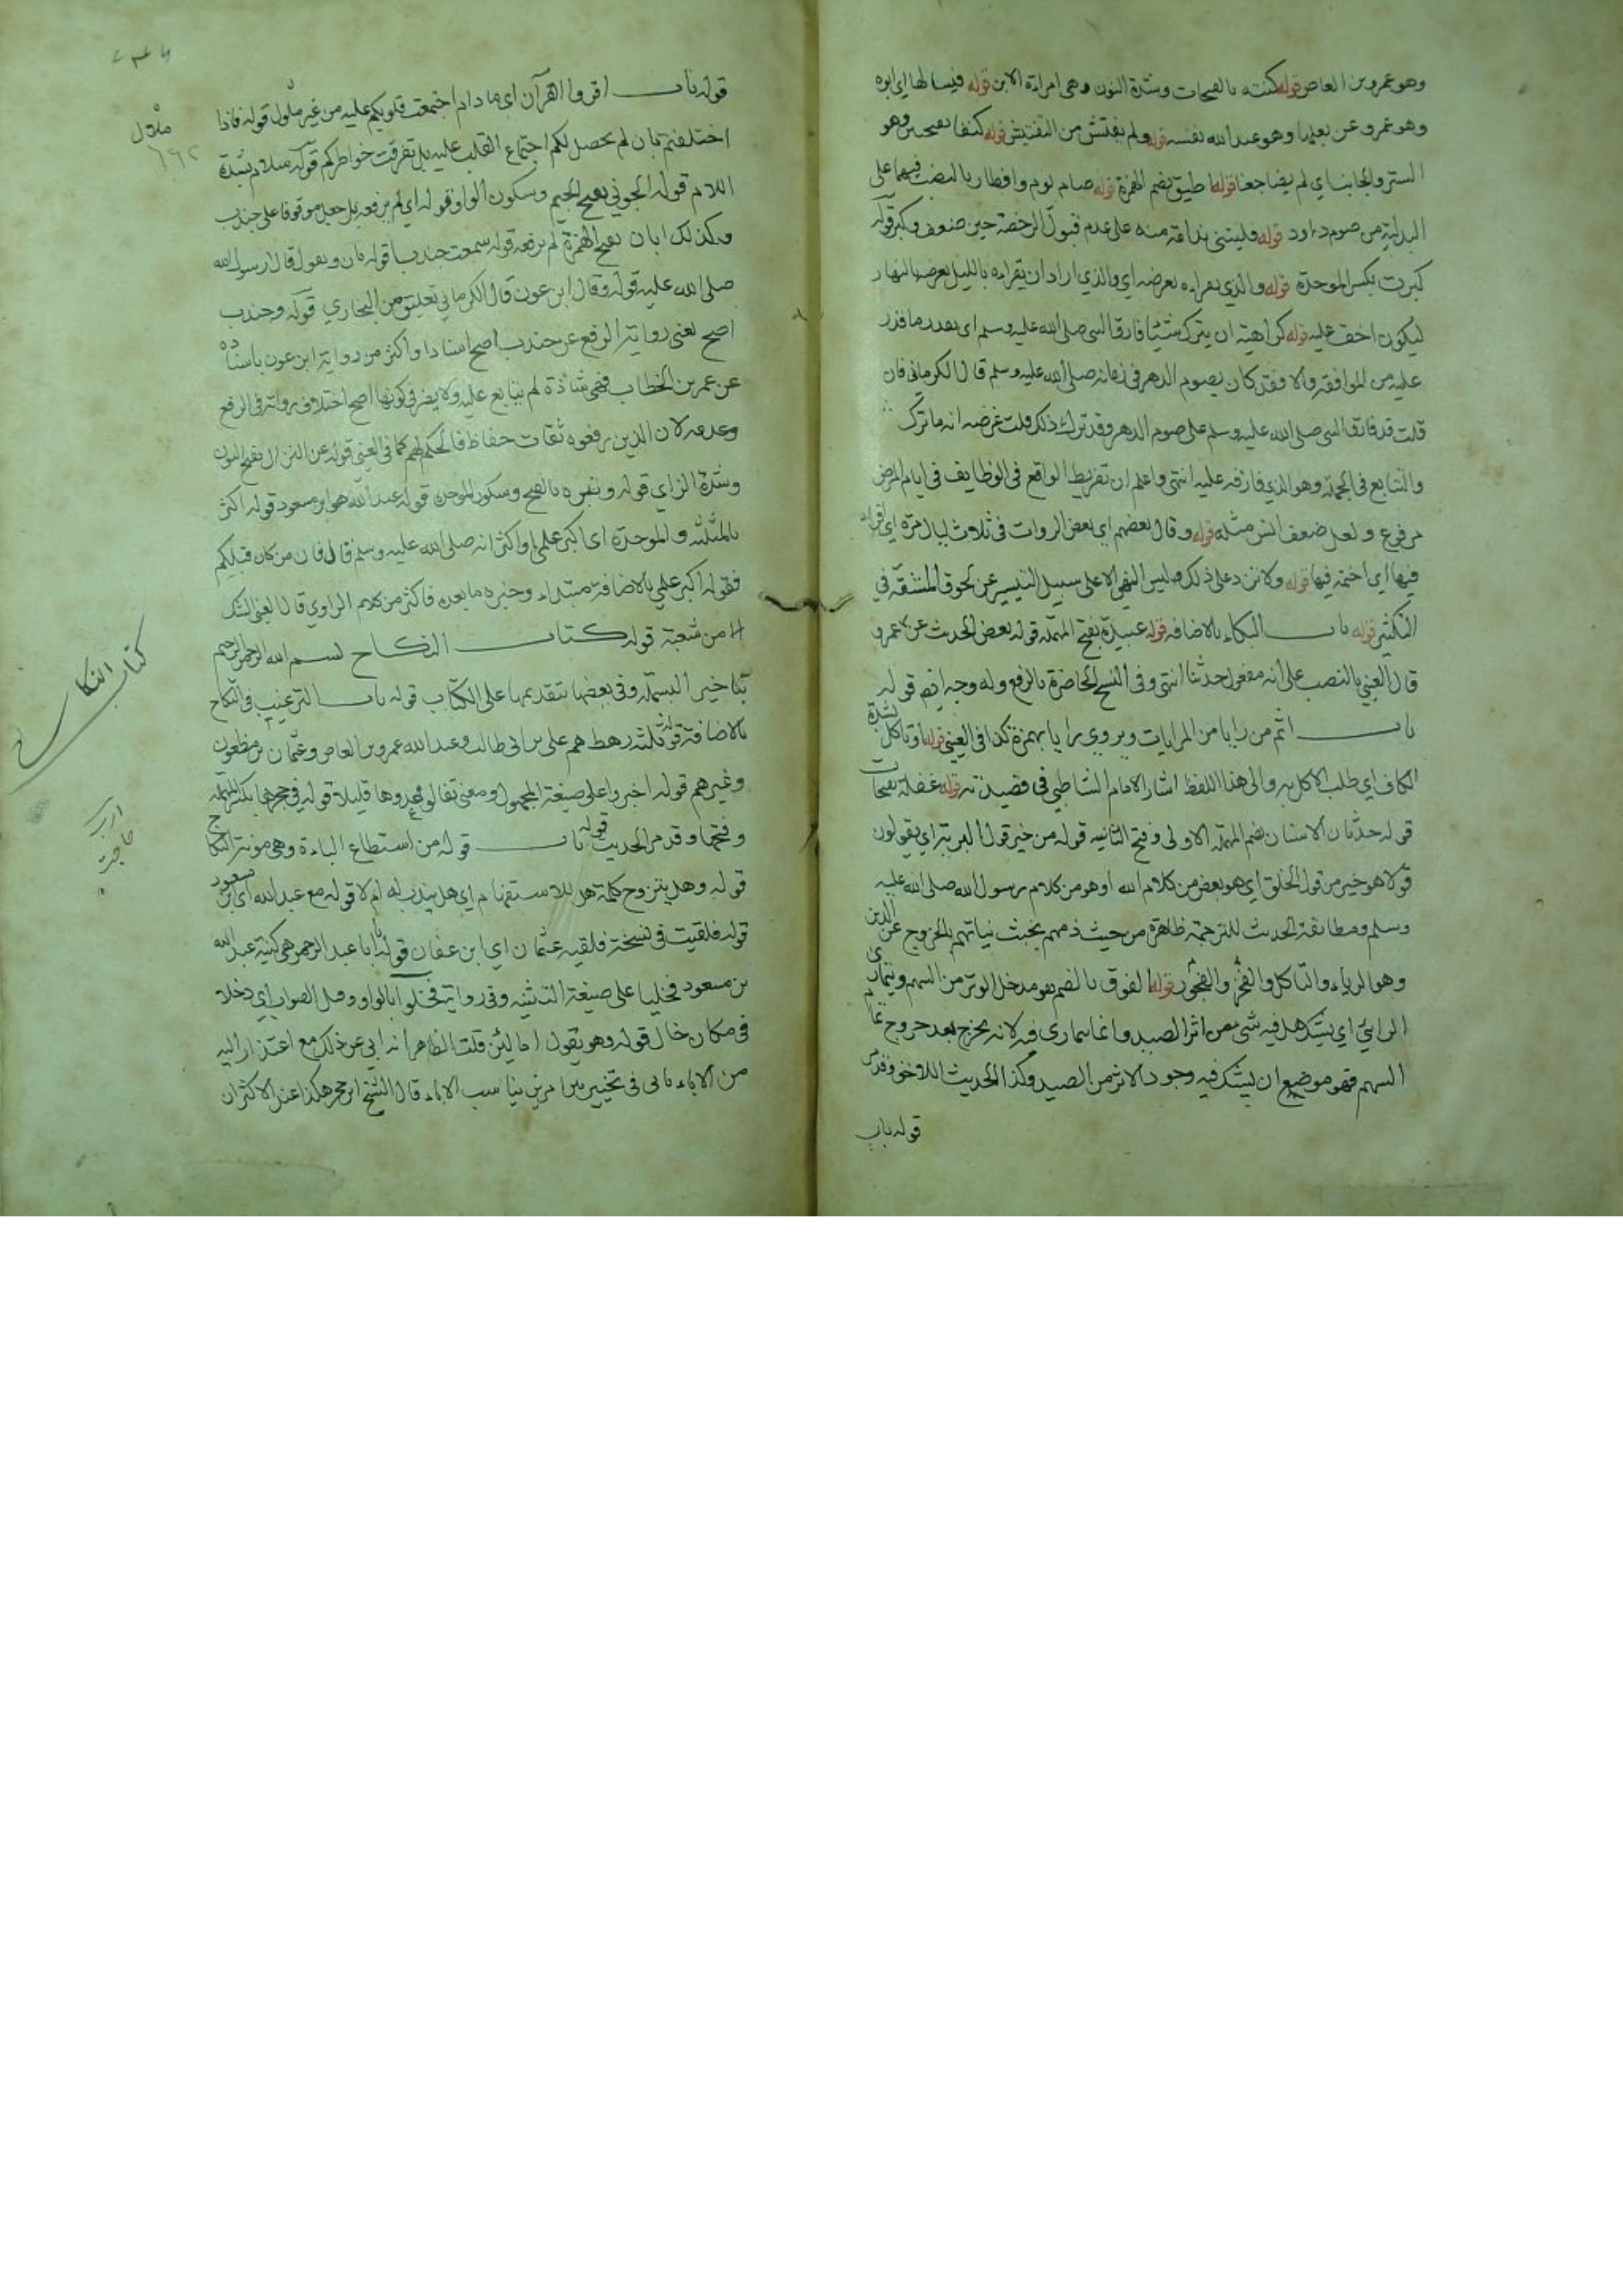 وهو عمرو بن العاص قوله كنته بالفتحات وشدة النون وهى امراءة الابن قوله فيسالها اي ابوه
وهو عمرو عن بعلها وهو عبد الله نفسه قوله ولم يفتش من التفتيش قوله كنفا بفتحتين وهو
الستر والجانب اي لم يضاجعنا قوله اطيق بضم الهمزة قوله صيام يوم وافطار بالنصب فيهما على
البدلية من صوم داود قوله فليتنى ندامة منه على عدم قبول الرخصة حين ضعف وكبر قوله
كبرت بكسر الموحدة قوله والذي يقراءه يعرضه اي والذي اراد ان يقراءه بالليل يعرضه بالنهار
ليكون اخف عليه قوله كراهية ان يترك شيئا فارق النبى صلى الله عليه وسلم اى بقدر ما قدر
عليه من الموافقة والا فقد كان يصوم الدهر فى زمانه صلى الله عليه وسلم قال الكرمانى فان
قلت قد فارق النبى صلى الله عليه وسلم على صوم الدهر وقد ترك ذلك قلت غرضه انه ما ترك
والتتابع فى الجملة وهو الذي فارقه عليه انتهى واعلم ان تفريط الواقع فى الوظايف فى ايام المرض
مرفوع ولعل ضعف السن مثله قوله وقال بعضهم اي بعض الروات فى ثلاث ليال مرة اي اقراء
فيها اي اختمه فيها قوله ولا تزد على ذلك وليس النهي الا على سبيل التيسير عن لحوق المشقة في
التكثير قوله باب البكاء بالاضافه قوله عبيدة بفتح المهملة قوله بعض الحديث عن عمرو
قال العيني بالنصب على انه مفعول حدثنا انتهى وفى النسخ الحاضرة بالرفع وله وجه ايضا قوله
باب اثم من رايا من المرايات ويروي رايا بهمزة كذا فى العيني قوله او تاكل بشدة
الكاف اي طلب الاكل به والى هذا اللفظ اشار الامام الشاطبي فى قصيدته قوله غفلة بفتحات
قوله حدثان الاسنان بضم المهملة الاولى وفتح الثانيه قوله من خير قول البرية اي يقولون
قولا هو خير من قول الخلق اي هو بعض من كلام الله او هو من كلام رسول الله صلى الله عليه
وسلم ومطابقة الحديث للترجمة ظاهرة من حيث ذمهم بخبث نياتهم بالخروج عن الدين
وهو الرياء والتاكل والفخر والفجور قوله الفوق بالضم هو مدخل الوتر من السهم ويتمارى
الرائي اي يشك هل فيه شى من اثر الصيد وانما يتمارى فيه لانه يخرج بعد خروج تمام
السهم فهو موضع ان يشك فيه وجود الاثر من الصيد وكذا الحديث اللاحق وقد مر
قوله باب
قوله باب اقروا القرآن اي ما دام اجتمعت قلوبكم عليه من غير ملول قوله فاذا
اختلفتم بان لم يحصل لكم اجتماع القلب عليه بل تفرقت خواطركم قوله سلام بشدة
اللام قوله الجوني بفتح الجيم وسكون الواو قوله اي لم يرفعه بل جعل موقوفا على جندب
وكذلك ابان بفتح الهمزة لم يرفعه قوله سمعت جندبا قوله بان ويقول قال رسول الله
صلى الله عليه قوله وقال ابن عون قال الكرماني تعليق من البخاري قوله وجندب
اصح يعنى رواية الرفع عن جندب اصح اسنادا واكثر من رواية ابن عون باسناده
عن عمر بن الخطاب فهى شاذة لم يتابع عليه ولا يضر فى كونها اصح اختلاف رواته فى الرفع
وعدمه لان الذين رفعوه ثقات حفاظ فالحكم لهم كما فى العينى قوله عن النزال بفتح النون
وشدة الزاي قوله وسبره بالفتح وسكون الموحدة قوله عبد الله هو ابن مسعود قوله اكثر
بالمثلثة والموحدة اى اكبر علمي او اكثر انه صلى الله عليه وسلم قال فان من كان قبلكم
فقوله اكبر علمي بالاضافة مبتداء وخبره ما بعده فاكثر من كلام الراوي قال يعنى الشك
من شعبة قوله كتاب النكاح بسم الله الرحمن الرحيم
بتاخير البسملة وفى بعضها بتقديمها على الكتاب قوله باب الترغيب فى النكاح
بالاضافة قوله ثلثة رهط هم على بن ابى طالب وعبد الله عمرو بن العاص وعثمان بن مظعون
وغيرهم قوله اخبروا على صيغة المجهول ومعنى تقالوها عدوها قليلا قوله فى حجرها بكسر المهملة
وفتحها وقد مر الحديث قوله باب قوله من استطاع الباءة وهى مونة النكاح
قوله وهل يتزوج كلمة هل للاستفهام اي هل يندب له ام لا قوله مع عبد الله اي ابن مسعود
قوله فلقيت فى نسخة فلقيه عثمان اي ابن عفان قوله يا ابا عبد الرحمن هى كنية عبد الله
بن مسعود فخليا على صيغة التثنيه وفى رواية فخلوا بالواو وهى الصواب اي دخلا
فى مكان خال قوله وهو يقول اما لئن قلت الظاهر انه ابي عن ذلك مع اعتذار اليه
من الاباء قال الشيخ ابن حجر هكذا عند الاكثر ان
ملول
كتاب النكاح
ارب
حاجت